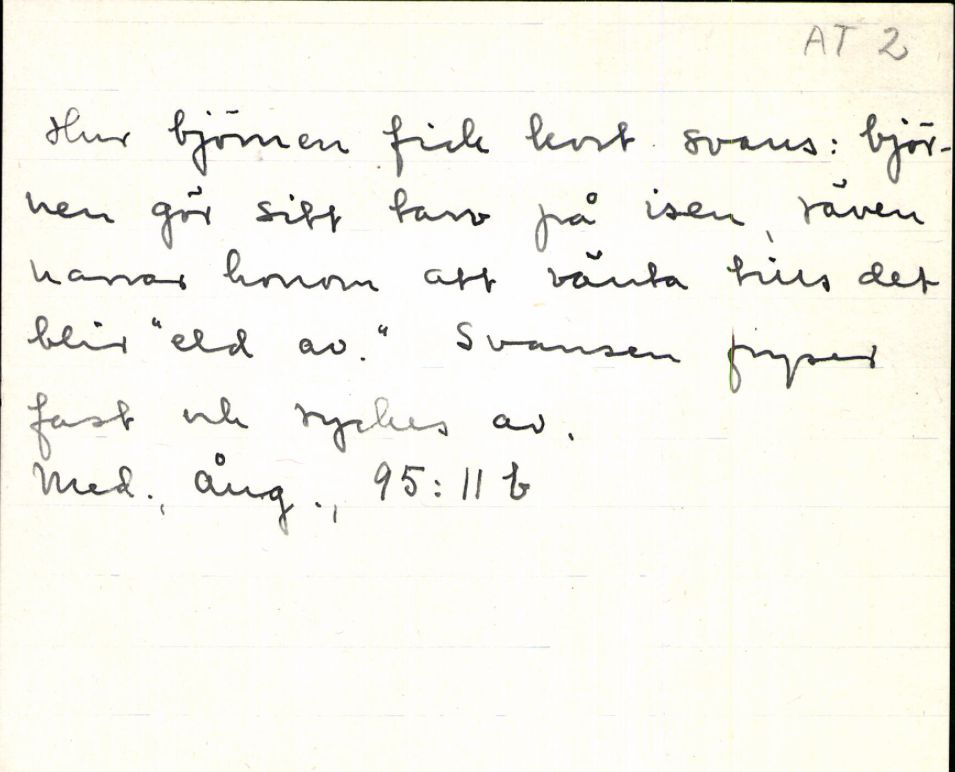 AT 2
Hur björnen fick kort svans: björ-
nen gör sitt tarv på isen, räven
narrar honom att vänta tills det
blir "eld av." Svansen fryser
fast och ryckes av.
Med., Ång., 95:11 b